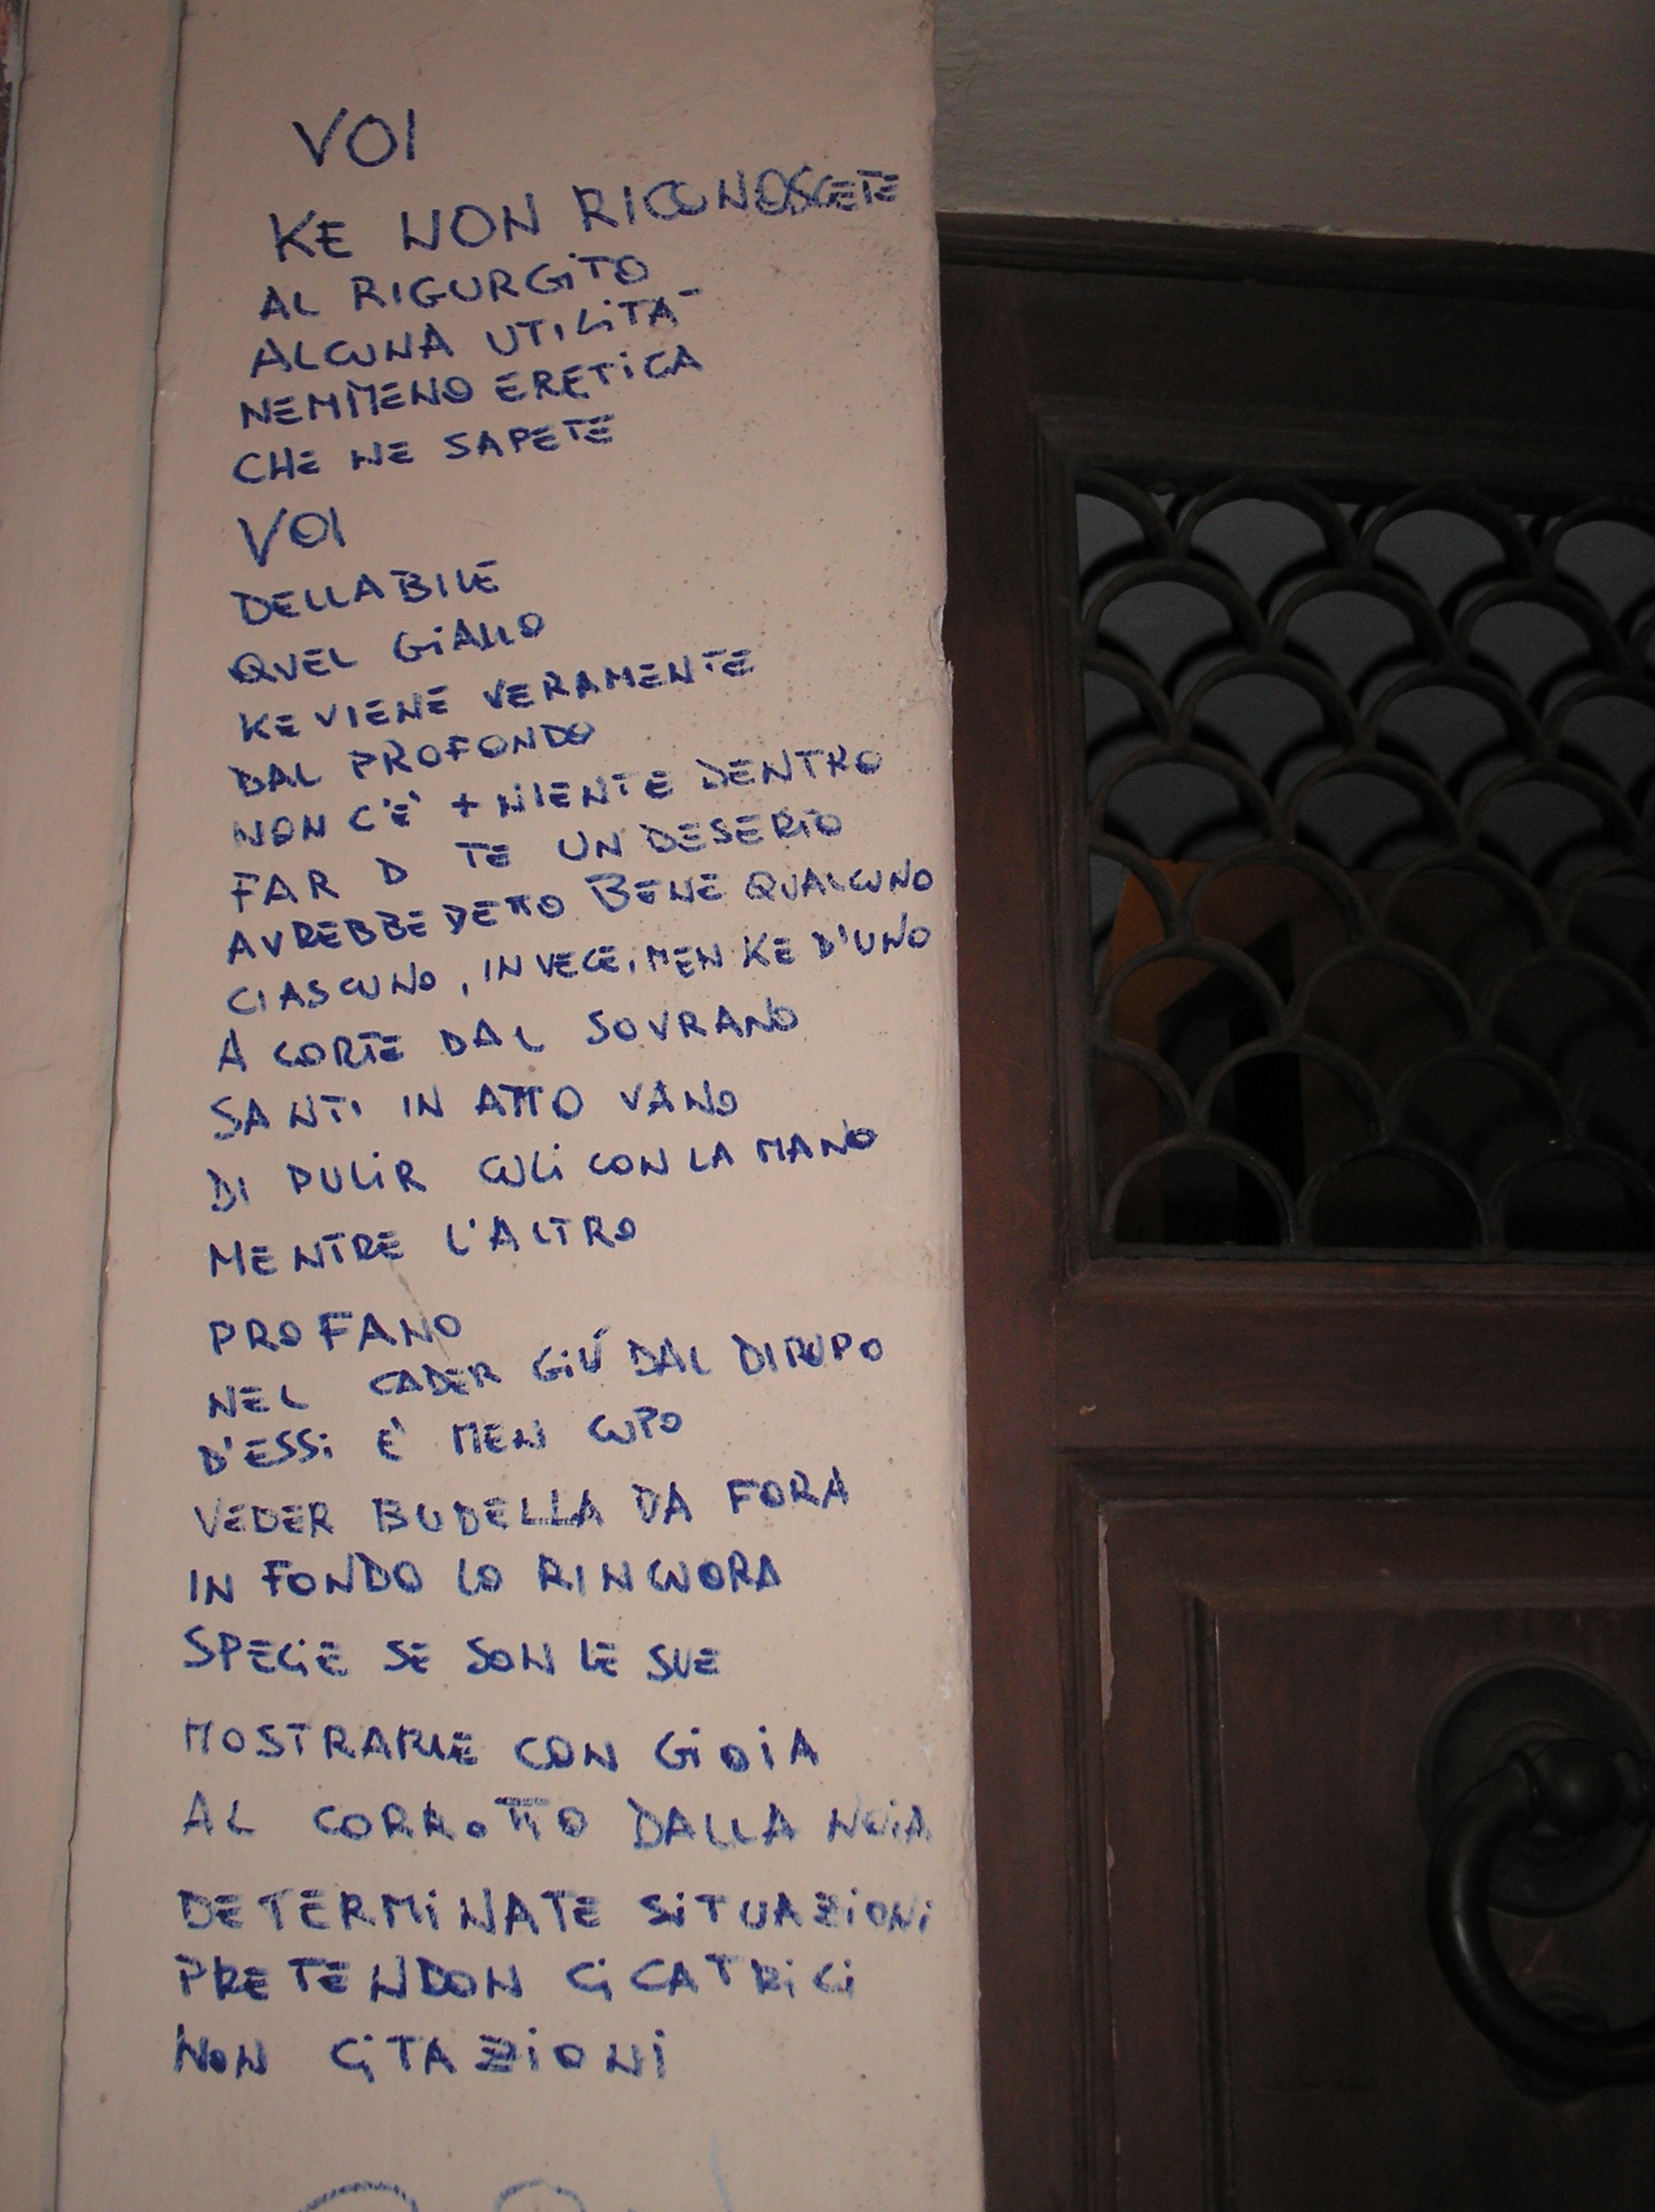 VOI
KE NON RICONOSCETE
AL RIGURGITO
ALCUNA UTILITA'
NEMMENO ERETICA
CHE NE SAPETE
VOI
DELLA BILE
QUEL GIALLO
KE VIENE VERAMENTE
DAL PROFONDO
NON C'È + NIENTE DENTRO
FAR D TE UN DESERTO
AVREBBE DETTO BENE QUALCUNO
CIASCUNO, INVECE, MEN KE D'UNO
A CORTE DAL SOVRANO
SANTI IN ATTO VANO
DI PULIR CULI CON LA MANO
MENTRE L'ALTRO
PROFANO
NEL CADER GIÚ DAL DIRUPO
D'ESSI È MEN CUPO
VEDER BUDELLA DA FORA
IN FONDO LO RINCUORA
SPECIE SE SON LE SUE
MOSTRARLE CON GIOIA
AL CORROTTO DALLA NOIA
DETERMINATE SITUAZIONI
PRETENDON CICATRICI
NON CITAZIONI